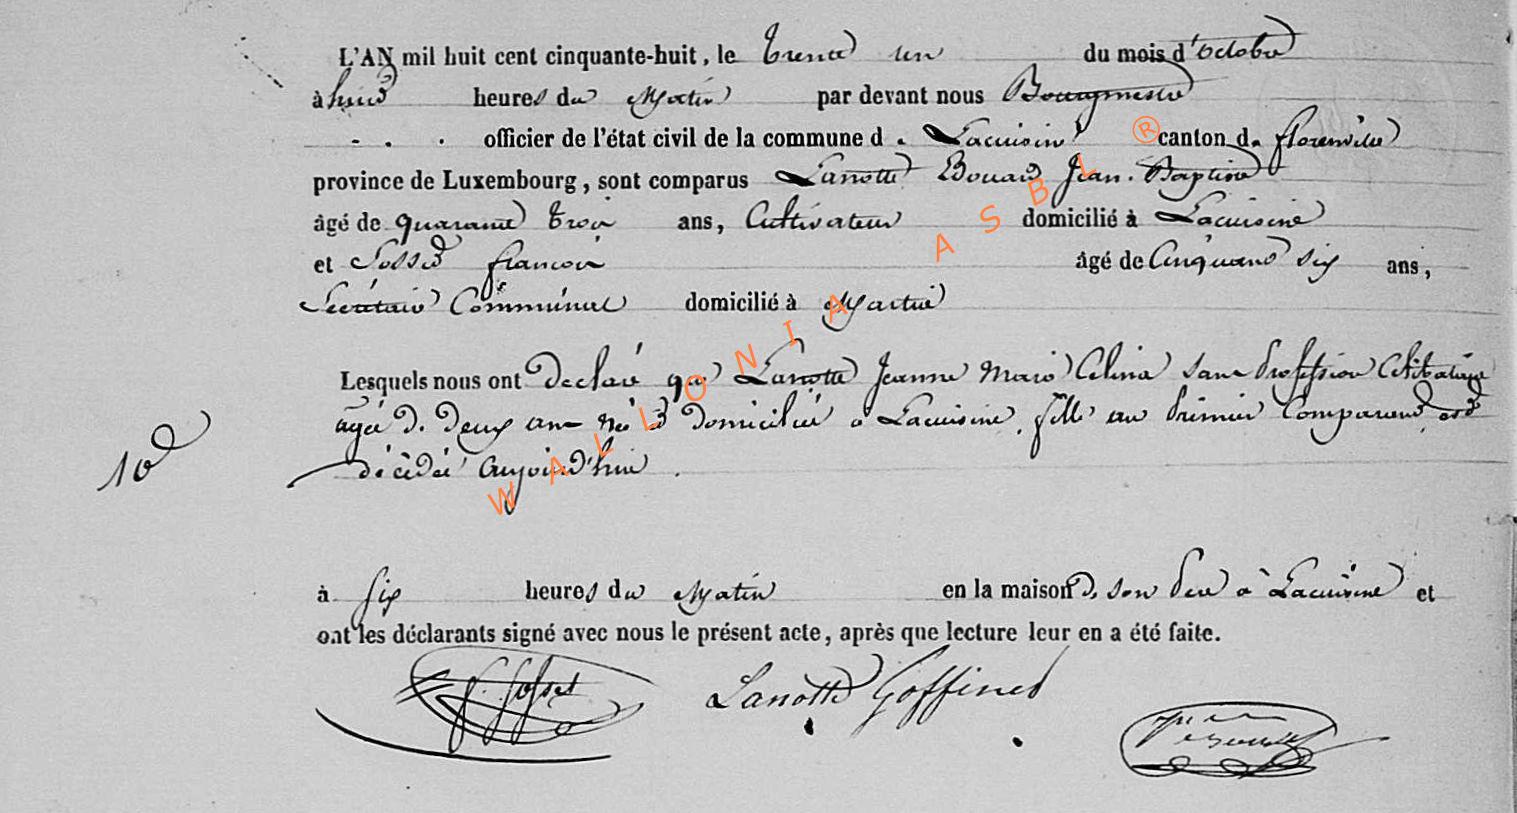 L'AN mil huit cent cinquante-huit, le trente un du mois d'octobre
à huit heures du Matin par devant nous Bourgmestre
officier de l'état civil de la commune d. Lacuisine canton d. florenville
province de Luxembourg, sont comparus Lanotte Jean Baptiste
âgé de quarante trois ans, Cultivateur domicilié à Lacuisine
et Gosset françois âgé de Cinquante six ans,
Secrétaire Communal domicilié à Martué
Lesquels nous ont déclaré que Lanotte Jeanne Marie Celina sans profession Célibataire
agée de deux ans née et domiciliée à Lacuisine, fille au premier Comparant est
décédée aujourd'hui.
10
à six heures du Matin en la maison de son père à Lacuisine et
ont les déclarants signé avec nous le présent acte, après que lecture leur en a été faite.
f. Gosset Lanotte Goffinet
WALLONIA ASBL ®